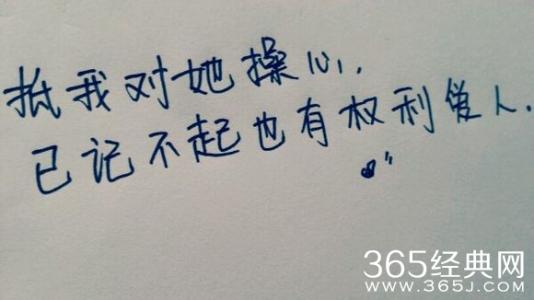 抵我对她操心,
已记不起也有权利爱人.
365经典网
www.365J.com